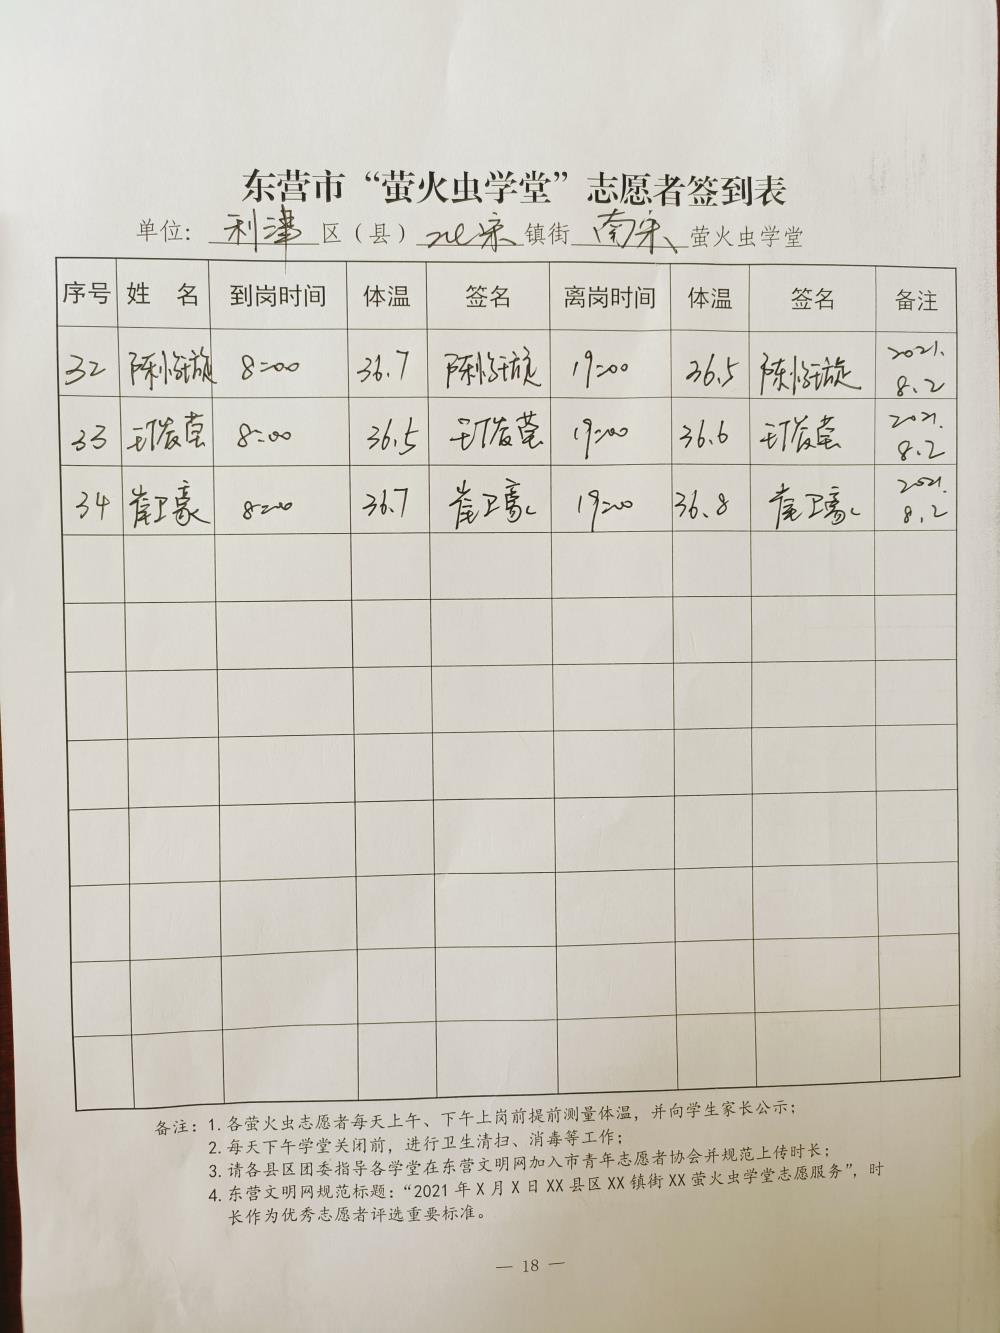 东营市“萤火虫学堂”志愿者签到表
单位: 利津 区(县) 北宋 镇街 南宋 萤火虫学堂
序号 姓 名 到岗时间 体温 签名 离岗时间 体温 签名 备注
32 陈怡璇 8:00 36.7 陈怡璇 19:00 36.5 陈怡璇 2021.
8.2
33 8:00 36.5 19:00 36.6 2021.
8.2
34 崔卫豪 8:00 36.7 崔卫豪 19:00 36.8 崔卫豪 2021.
8.2
备注: 1. 各萤火虫志愿者每天上午、下午上岗前提前测量体温，并向学生家长公示；
2. 每天下午学堂关闭前，进行卫生清扫、消毒等工作；
3. 请各县区团委指导各学堂在东营文明网加入市青年志愿者协会并规范上传时长；
4. 东营文明网规范标题：“2021 年 X 月 X 日 XX 县区 XX 镇街 XX 萤火虫学堂志愿服务”，时
长作为优秀志愿者评选重要标准。
— 18 —